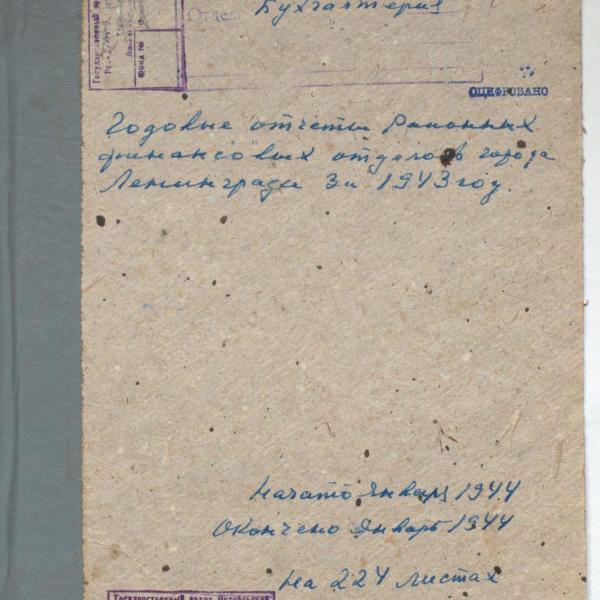 Бухгалтерия
Отдел
Фонд №
ОЦИФРОВАНО
Годовые отчеты районных
финансовых отделов города
Ленинграда за 1943 год.
Начато январь 1944
Окончено январь 1944
на 224 листах
Государственный архив Октябрьской